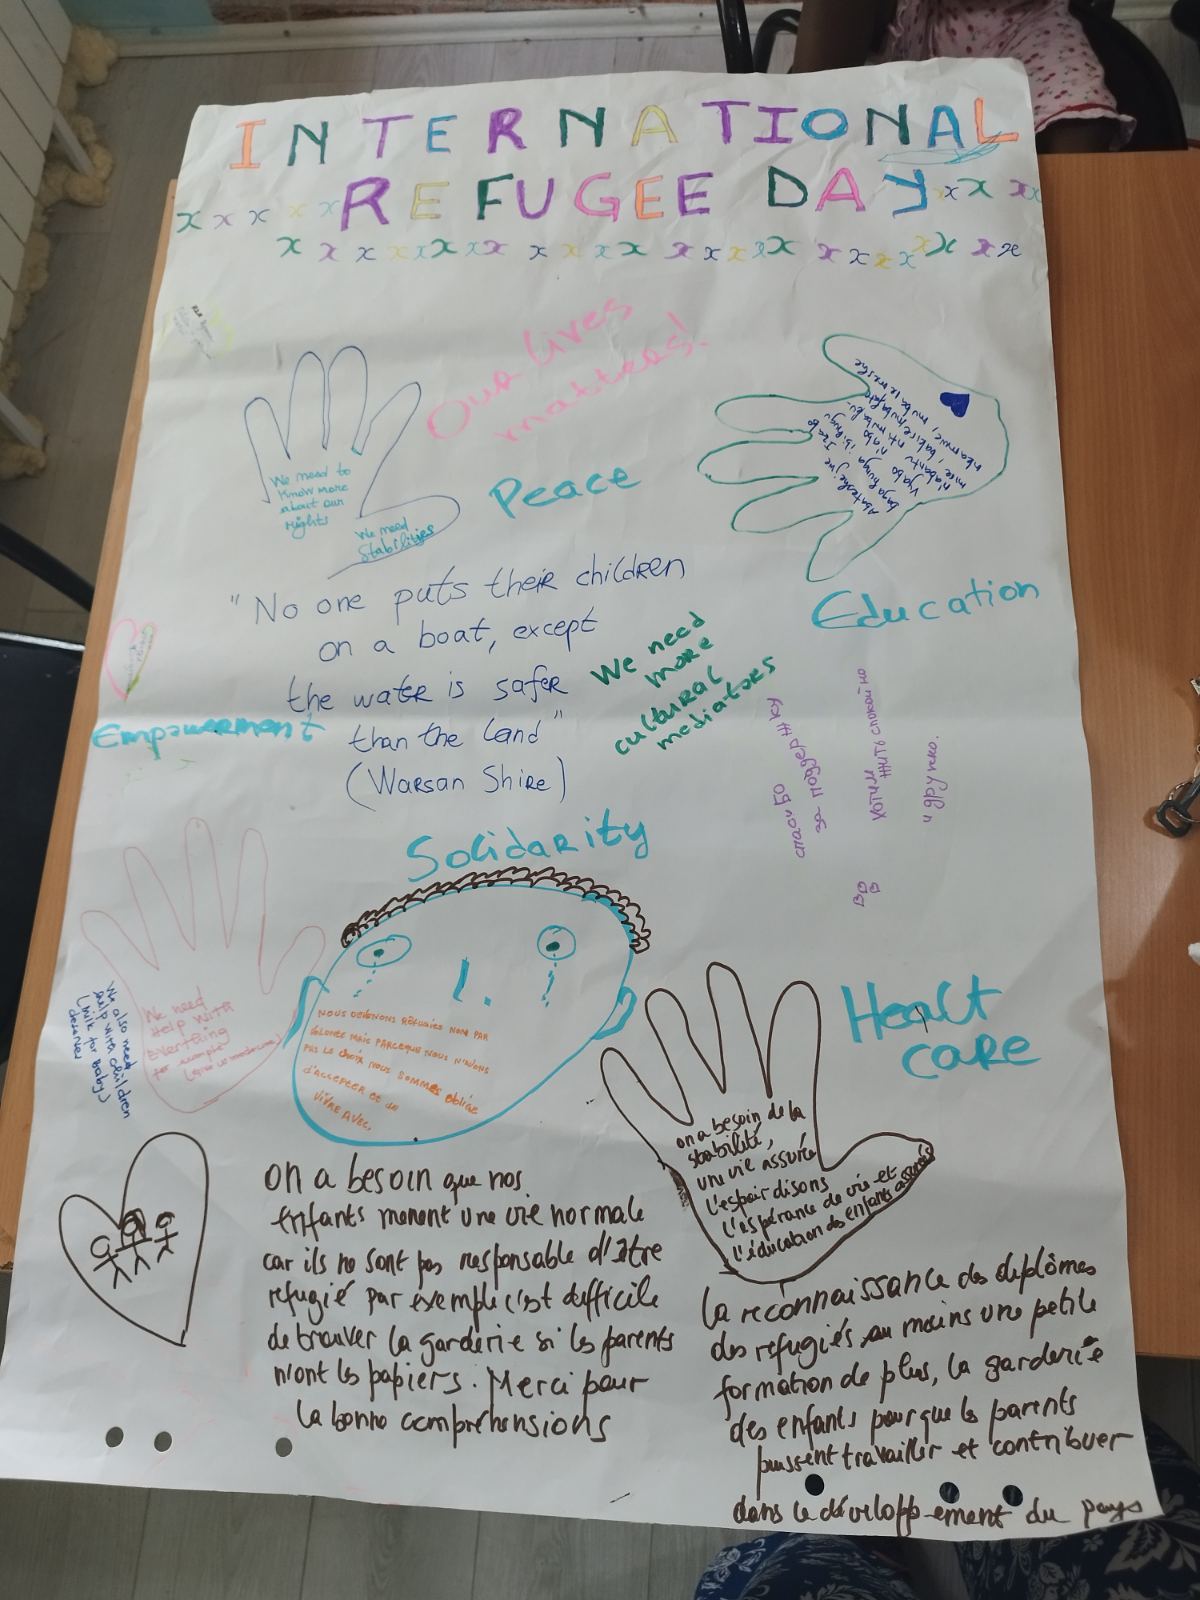 INTERNATIONAL
REFUGEE DAY
Our lives
matters!
We need to
know more
about our
rights
We need
stabilities
Peace
Education
"No one puts their children
on a boat, except
the water is safer
than the land"
(Warsan Shire)
We need
more
cultural
mediators
Empowerment
спасибо
за поддержку
хотим
жить спокойно
и дружно.
Solidarity
We need
help with
everything
for example
We also need
help with children
(milk for baby)
NOUS DEVENONS RÉFUGIÉS NON PAR
GLOIRE MAIS PARCEQUE NOUS N'AVONS
PAS LE CHOIX NOUS SOMMES OBLIGÉ
D'ACCEPTER ET DE
VIVRE AVEC.
Healt
care
on a besoin de la
stabilité,
une vie assurée
l'espoir disons
l'éspérance de vie et
l'éducation des enfants assurés
On a besoin que nos
enfants menent une vie normale
car ils ne sont pas responsable d'être
réfugié par exemple c'est difficile
de trouver la garderie si les parents
n'ont les papiers. Merci pour
la bonne compréhensions
La reconnaissance des diplômes
des refugiés au moins une petite
formation de plus, la garderie
des enfants pour que les parents
puissent travailler et contribuer
dans le développement du pays